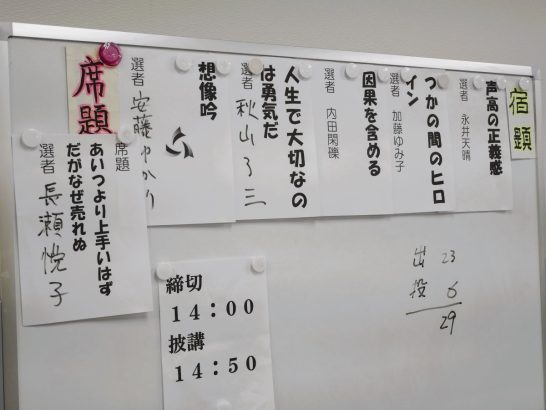 宿題
声高の正義感
選者 永井天晴
つかの間のヒロ
イン
選者 加藤ゆみ子
因果を含める
選者 内田閑礫
人生で大切なの
は勇気だ
選者 秋山了三
想像吟
選者 安藤ゆかり
席題
席題
あいつより上手いはず
だがなぜ売れぬ
選者 長瀬悦子
締切
14:00
披講
14:50
出 23
投 6
29